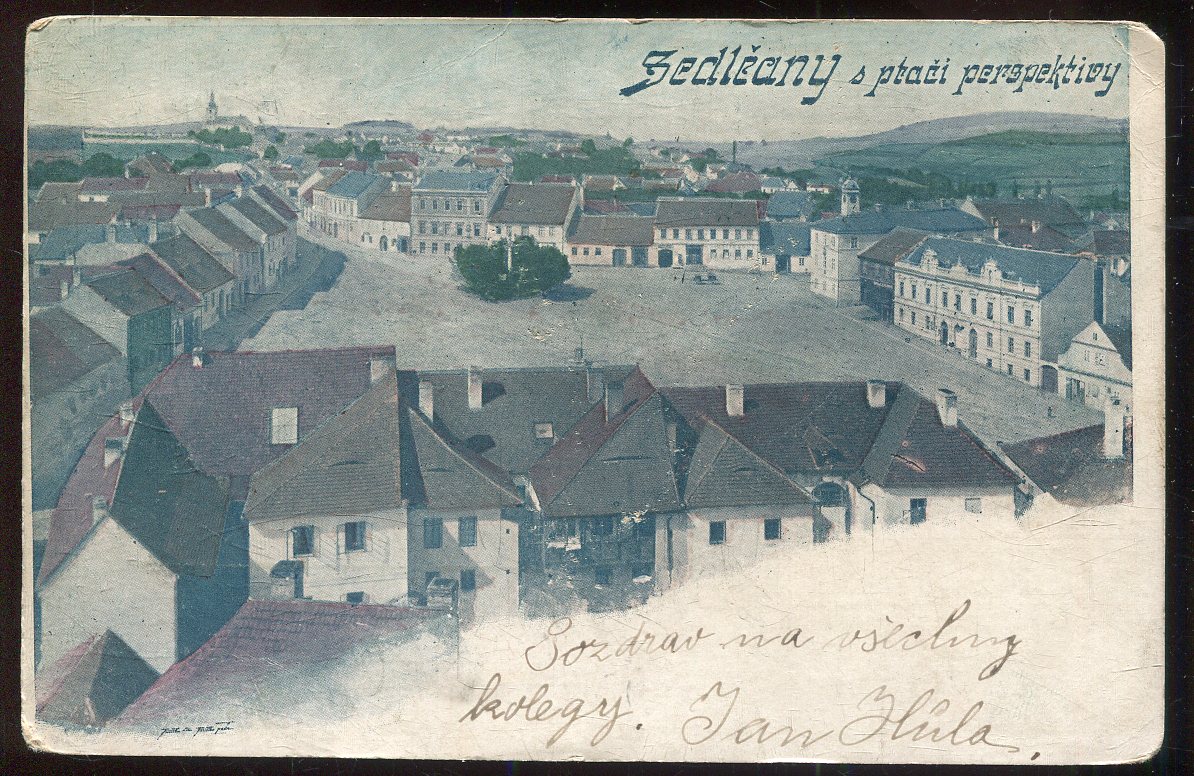 Sedlčany s ptačí perspektivy
Pozdrav na všechny
kolegy. Jan Hůla.